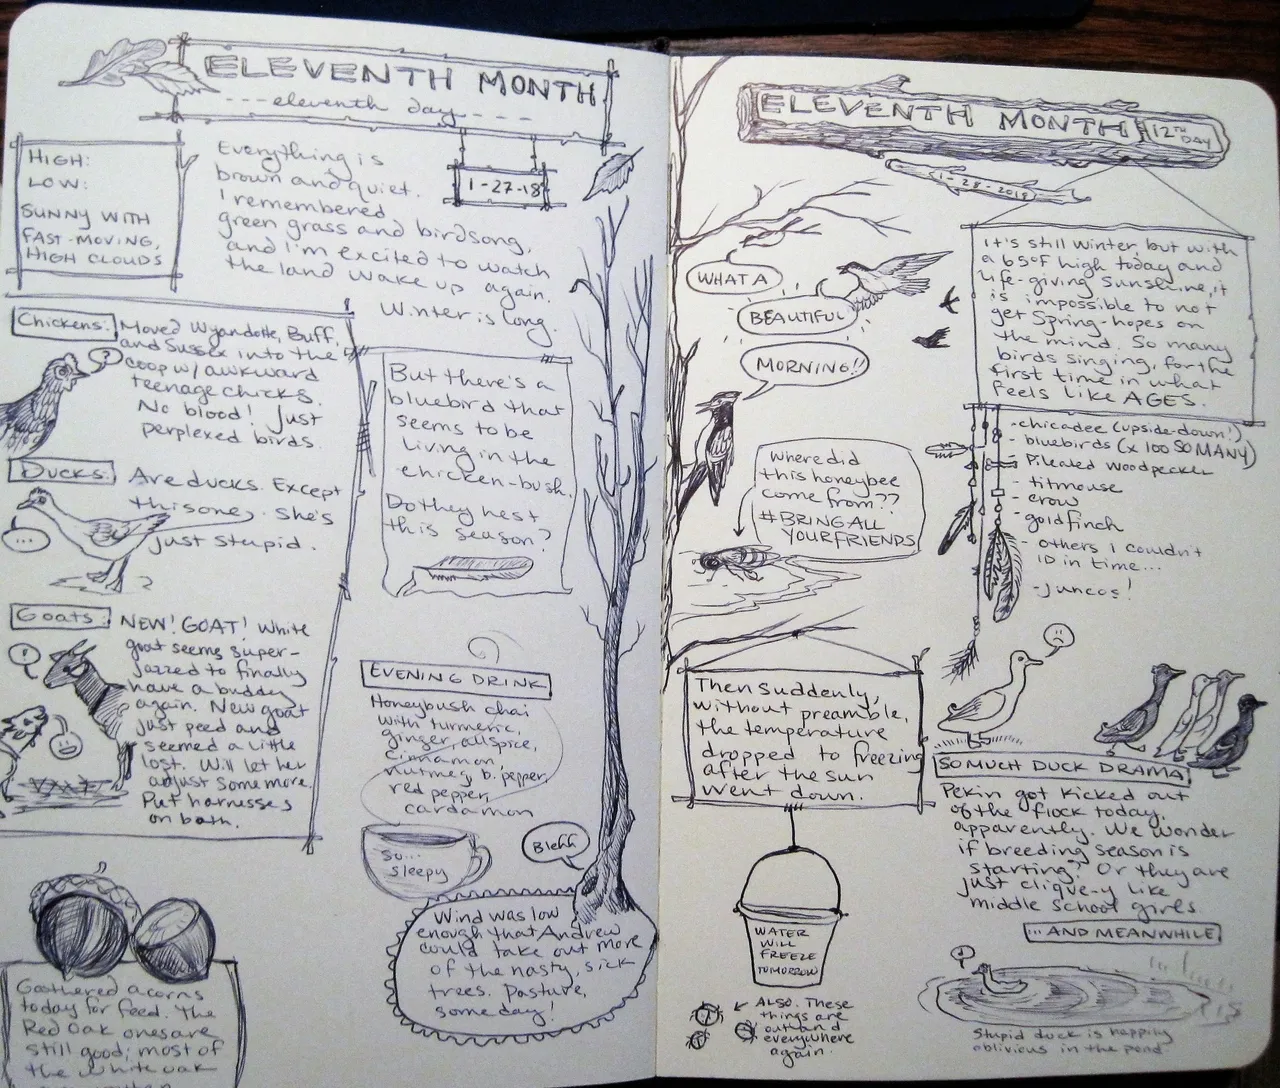 ELEVENTH MONTH
---eleventh day----
1-27-18
HIGH:
LOW:
SUNNY WITH
FAST-MOVING,
HIGH CLOUDS
Everything is
brown and quiet.
I remembered
green grass and birdsong,
and I'm excited to watch
the land wake up again.
Winter is long.
Chickens:
Moved Wyandotte, Buff,
and Sussex into the
coop w/ awkward
teenage chicks.
No blood! Just
perplexed birds.
?
Ducks:
Are ducks. Except
this one. She's
just stupid.
...
?
Goats:
NEW! GOAT! White
goat seems super-
jazzed to finally
have a buddy
again. New goat
just peed and
seemed a little
lost. Will let her
adjust some more.
Put harnesses
on both.
!
But there's a
bluebird that
seems to be
living in the
chicken-bush.
Do they nest
this season?
EVENING DRINK
Honeybush chai
with turmeric,
ginger, allspice,
cinnamon,
nutmeg, b. pepper,
red pepper,
cardamon
So...
sleepy
Blehh
Wind was low
enough that Andrew
could take out more
of the nasty, sick
trees. Pasture,
someday!
Gathered acorns
today for feed. The
Red Oak ones are
still good; most of
the white oak
ELEVENTH MONTH 12TH DAY
1-28-2018
WHAT A
BEAUTIFUL
MORNING!!
It's still winter but with
a 65°F high today and
life-giving sunshine, it
is impossible to not
get Spring-hopes on
the mind. So many
birds singing, for the
first time in what
feels like AGES.
- chicadee (upside-down!)
- bluebirds (x 100 SO MANY)
- Pileated Woodpecker
- titmouse
- crow
- goldfinch
- others I couldn't
ID in time...
- juncos!
Where did
this honeybee
come from??
#BRING ALL
YOUR FRIENDS
Then suddenly,
without preamble,
the temperature
dropped to freezing
after the sun
went down.
WATER
WILL
FREEZE
TOMORROW
Also. These
things are
out and
everywhere
again.
SO MUCH DUCK DRAMA
Pekin got kicked out
of the flock today,
apparently. We wonder
if breeding season is
starting? Or they are
just clique-y like
middle school girls.
...AND MEANWHILE
Stupid duck is happily
oblivious in the pond